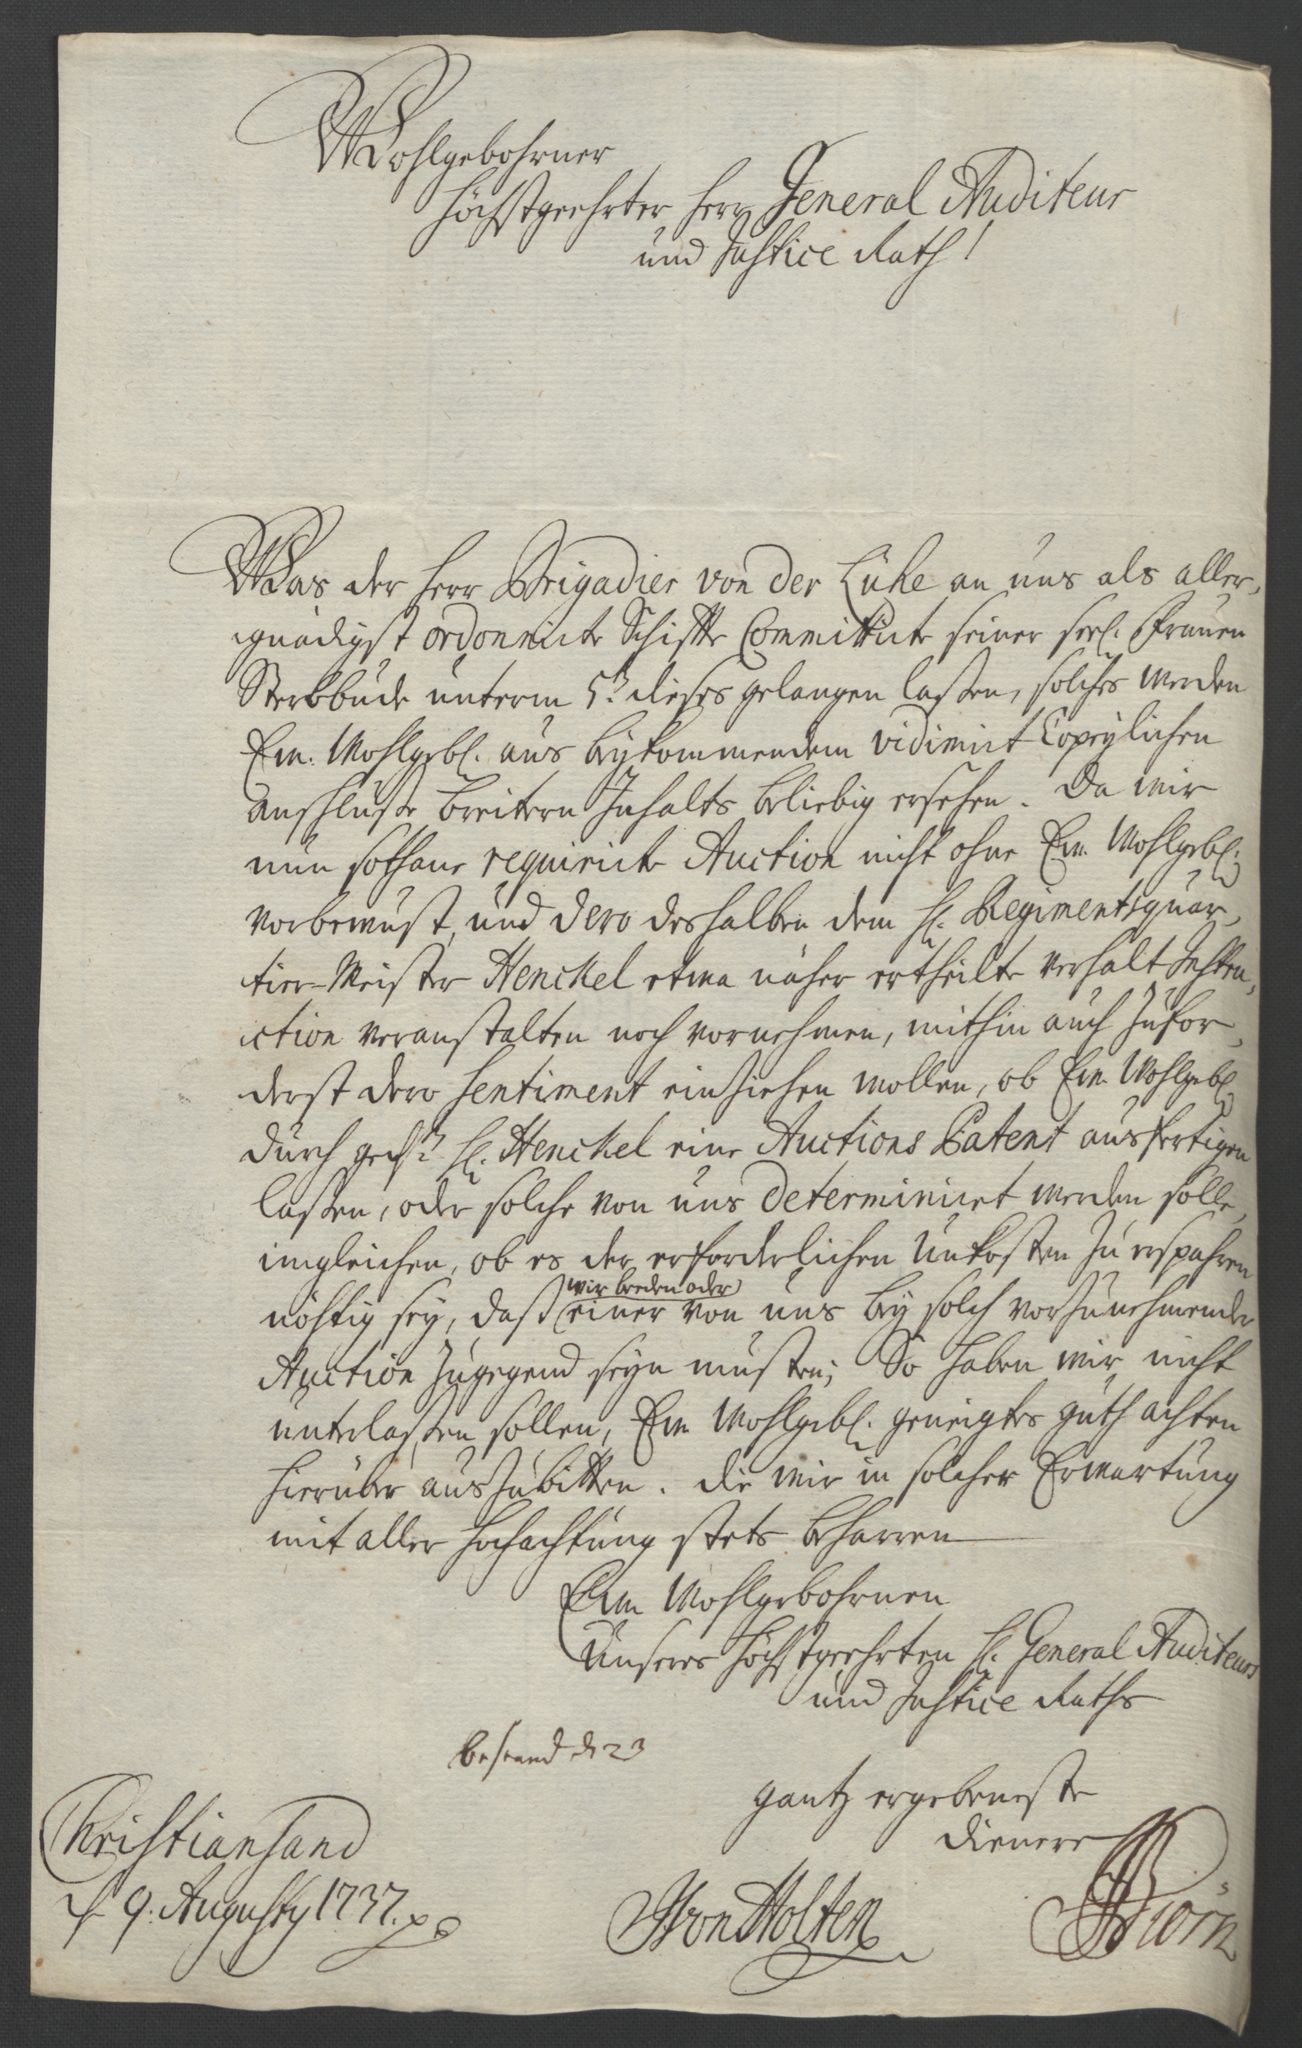 Wohlgebohrner
Höchstgeehrter Herr General Auditeur
und Justice Rath!
Was der Herr Brigadier von der Lühe an uns als aller,
gnädigst ordonnirte Schiffte Committirte seiner seel. Frauen
Sterbbude unterm 5t. dieses gelangen laßen, solches werden
Ew. Wohlgebl. aus beykommendem vidimirt Copeylichen
Anschluße breitern Inhalts beliebig ersehen. Da wir
nun sothane requirirte Auction nicht ohne Ew. Wohlgebl.
Vorbewust, und dero deshalben dem H. Regimentsquar,
tier-Meister Henckel etwa näher ertheilte Verhalt Instru,
ction veranstalten noch vornehmen, mithin auch zufor,
derst dero Sentiment einziehen wollen, ob Ew. Wohlgebl.
durch gedst. H. Henckel eine Auctions Patent ausfertigen
laßen, oder solche von uns determiniret werden solle,
imgleichen, ob es der erforderlichen Unkosten zu erspahren
wir beeden oder
nöhtig sey, daß einer von uns bey solch vorzunehmender
Auction zugegend seyn musten; So haben wir nicht
unterlaßen sollen, Ew. Wohlgebl. geneigtes guthachten
hierüber auszubitten. die wir in solcher Erwartung
mit aller Hochachtung stets beharren
Ew. Wohlgebohrnen
Unseres Höchstgeehrten H. General Auditeurs
und Justice Raths
besvared d 23
gantz ergebenste
Dienere
Christiansand
d 9. Augusty 1737.
von Holten
Biörn